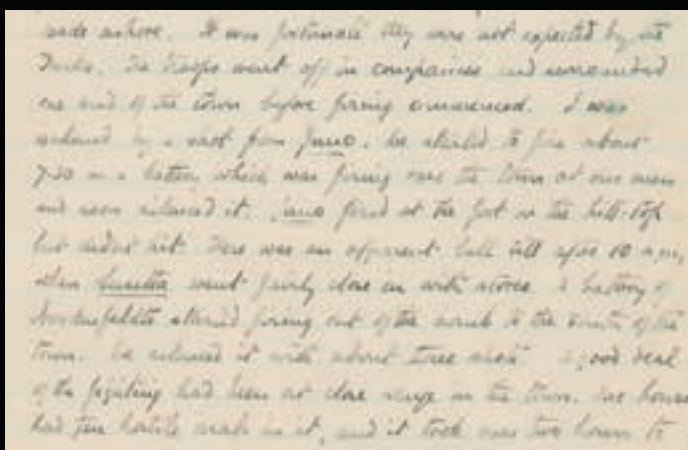 ashore. It was fortunate they were not expected by the
Turks. The troops went off in companies and surrounded
one end of the town before firing commenced. I was
by a shot from Juno. We started to fire about
7.30 on a battery which was firing over the town at our men
and soon silenced it. Juno fired at the fort on the hill-top
but didnt hit. There was an apparent lull till after 10 a.m.,
when Suretta went fairly close in with stores. A battery of
Nordenfeldts started firing out of the scrub to the south of the
town. We silenced it with about three shots. A good deal
of the fighting had been at close range in the town. One house
had ten hostile arabs in it, and it took over two hours to